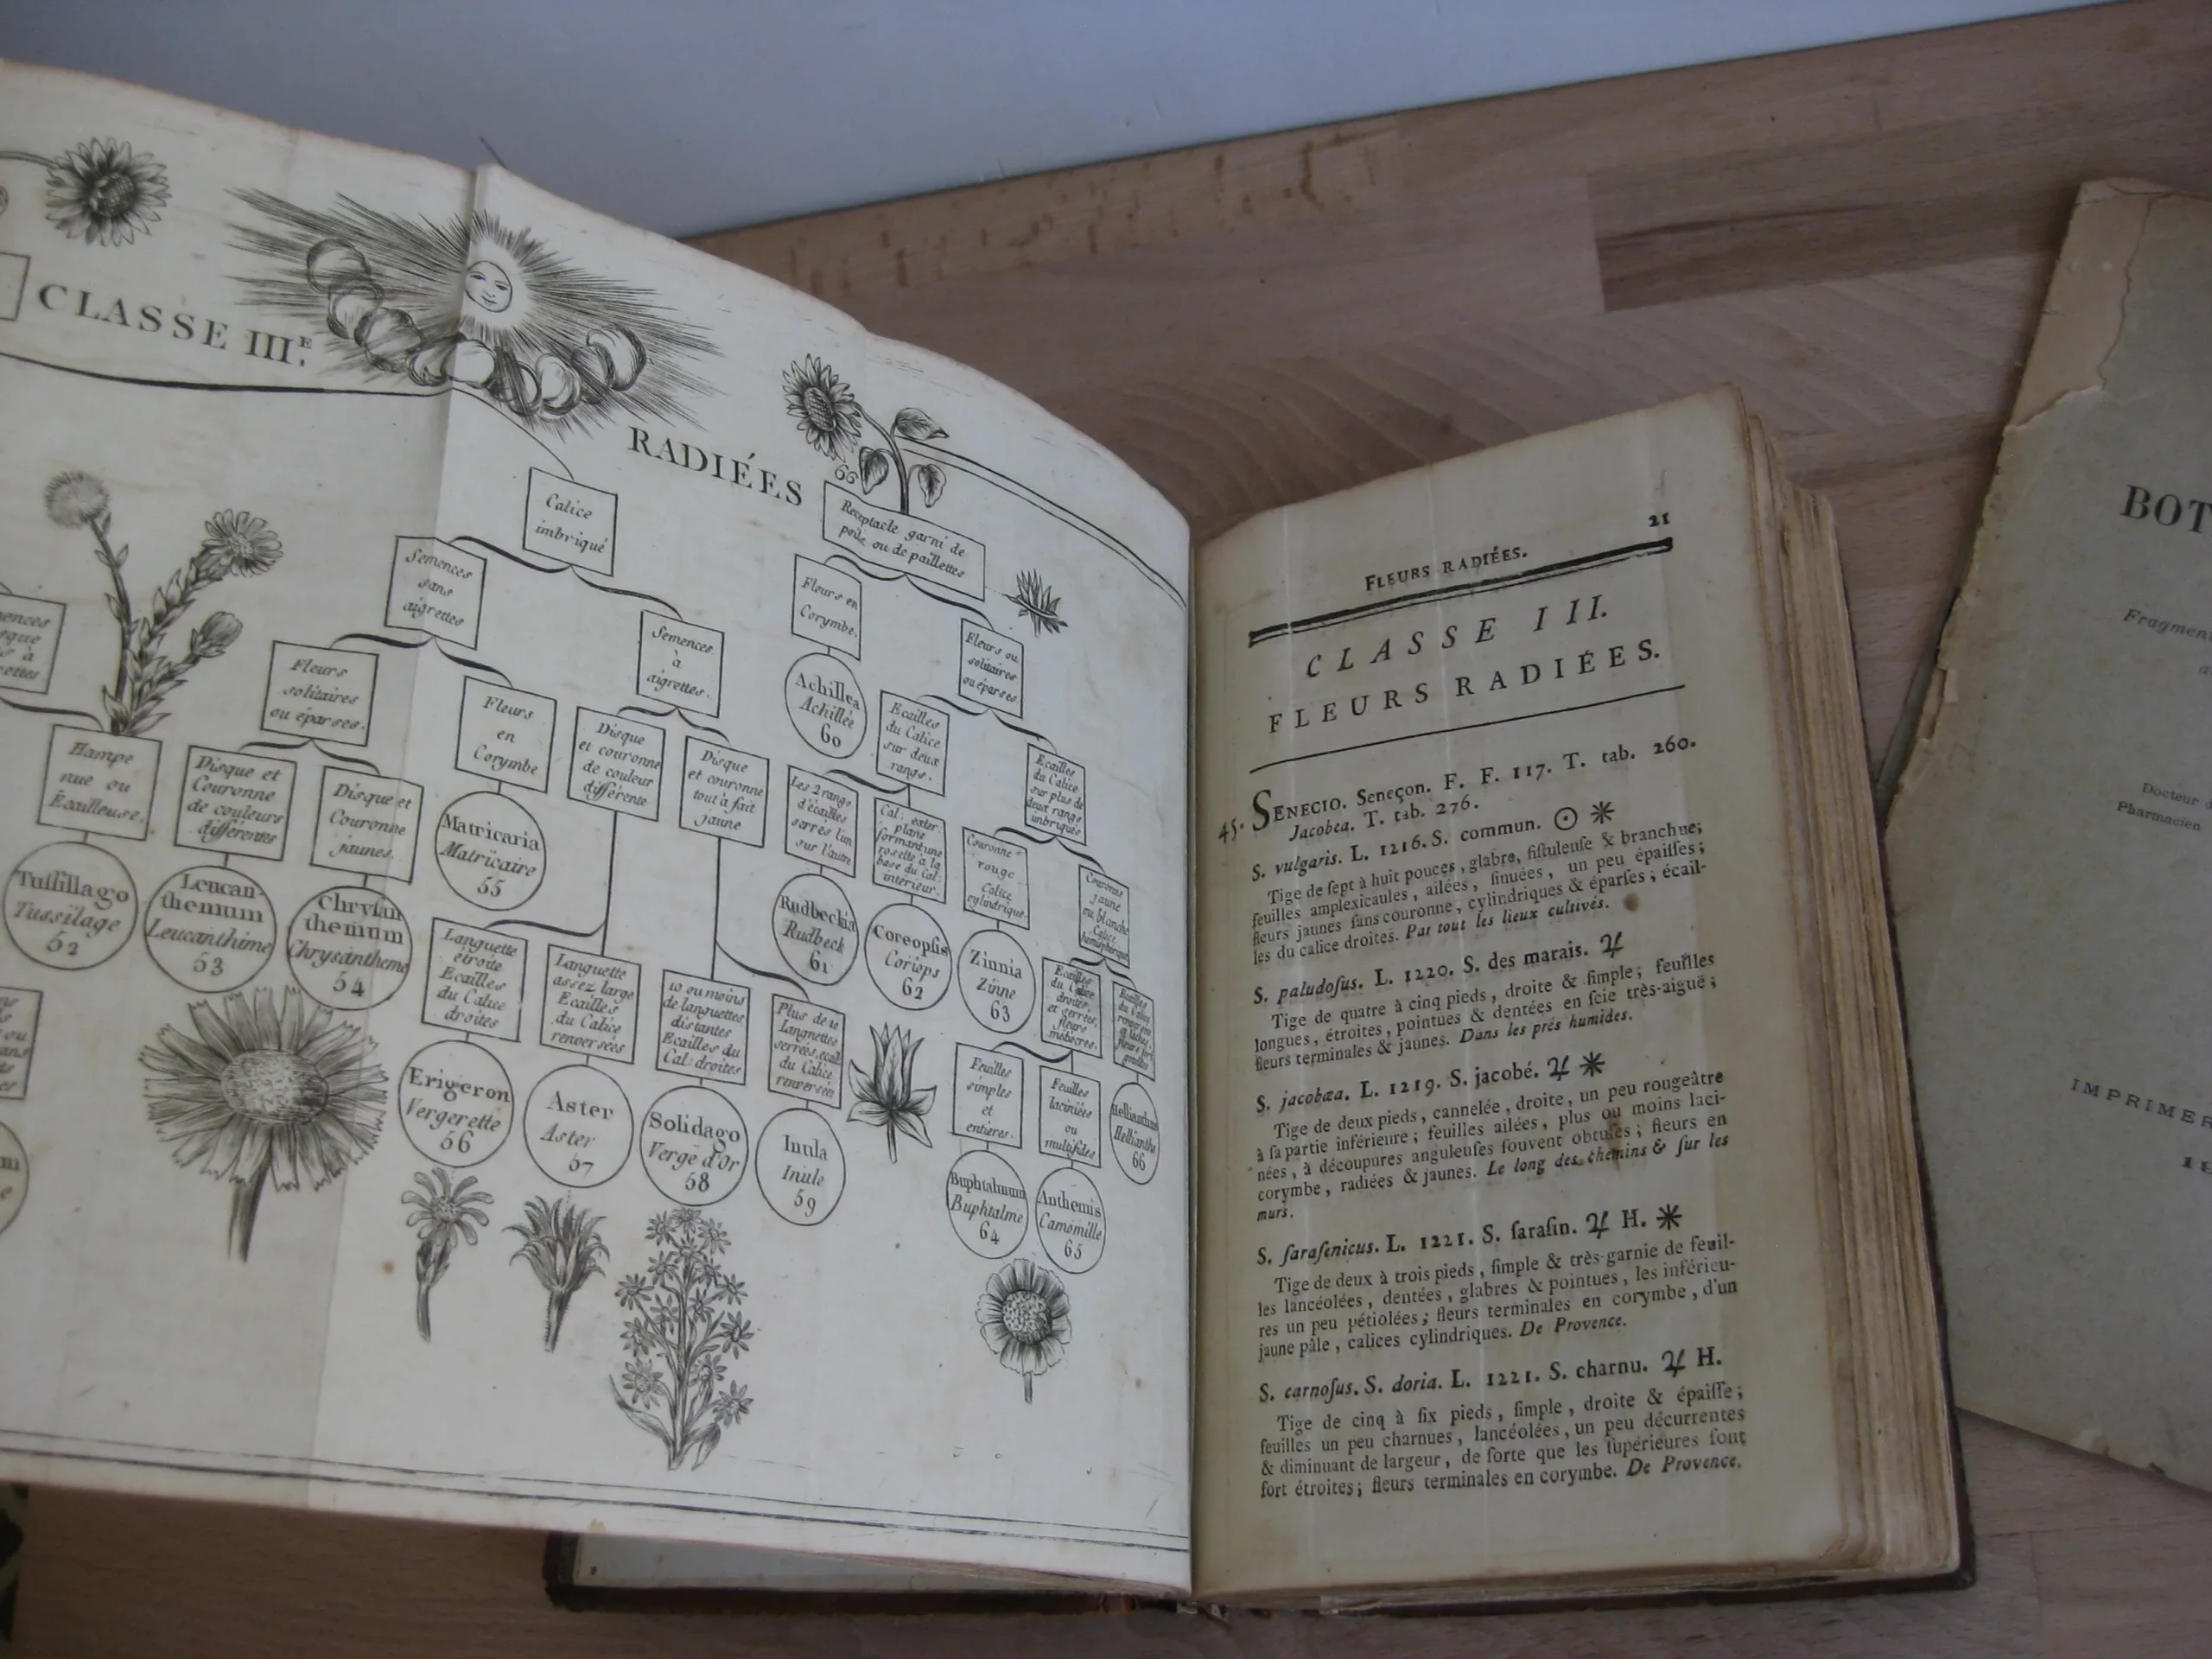 CLASSE III.E
RADIÉES
66
Calice
imbriqué
Receptacle garni de
poils ou de paillettes
Semences
sans
aigrettes
Semences
à
aigrettes.
Fleurs en
Corymbe.
Fleurs ou
solitaires
ou éparses
Fleurs
solitaires
ou éparses.
Fleurs
en
Corymbe
Hampe
nue ou
Écailleuse.
Disque et
Couronne
de couleurs
différentes
Disque et
Couronne
jaunes.
Disque
et couronne
de couleur
différente
Disque
et couronne
tout à fait
jaune
Achillea
Achillée
60
Ecailles
du Calice
sur deux
rangs.
Ecailles
du Calice
sur plus de
deux rangs
imbriqués
Tussillago
Tussilage
52
Leucan-
themum
Leucanthème
53
Chrysan
themum
Chrysantheme
54
Matricaria
Matricaire
55
Les 2 rangs
d'écailles
serrés l'un
sur l'autre
Cal: exter:
plane
formant une
rosette à la
base du Cal:
intérieur.
Couronne
rouge
Calice
cylindrique.
Couronne
jaune
ou blanche
Calice
hemisphérique
Rudbeckia
Rudbeck
61
Coreopsis
Coriops
62
Zinnia
Zinne
63
Languette
étroite
Ecailles
du Calice
droites
Languette
assez large
Ecailles
du Calice
renversées
10 ou moins
de languettes
distantes
Ecailles du
Cal: droites
Plus de 10
Languettes
serrées, écail:
du Calice
renversées
Ecailles
du Calice
droites
et serrées,
fleurs
médiocres.
Ecailles
du Calice
Erigeron
Vergerette
56
Aster
Aster
57
Solidago
Verge d'Or
58
Inula
Inule
59
Feuilles
simples
et
entieres.
Feuilles
laciniées
ou
multifides
Hellianthus
Hellianthe
66
Buphtalmum
Buphtalme
64
Anthemis
Camomille
65
21
FLEURS RADIÉES.
CLASSE III.
FLEURS RADIÉES.
45. SENECIO. Seneçon. F. F. 117. T. tab. 260.
Jacobea. T. tab. 276.
S. vulgaris. L. 1216. S. commun. ☉ *
Tige de ſept à huit pouces, glabre, fiſtuleuſe & branchue;
feuilles amplexicaules, ailées, ſinuées, un peu épaiſſes;
fleurs jaunes ſans couronne, cylindriques & éparſes; écail-
les du calice droites. Par tout les lieux cultivés.
S. paludoſus. L. 1220. S. des marais. ♃
Tige de quatre à cinq pieds, droite & ſimple; feuilles
longues, étroites, pointues & dentées en ſcie très-aiguë;
fleurs terminales & jaunes. Dans les prés humides.
S. jacobæa. L. 1219. S. jacobé. ♃ *
Tige de deux pieds, cannelée, droite, un peu rougeâtre
à ſa partie inférieure; feuilles ailées, plus ou moins laci-
nées, à découpures anguleuſes ſouvent obtuſes; fleurs en
corymbe, radiées & jaunes. Le long des chemins & ſur les
murs.
S. ſaraſenicus. L. 1221. S. ſaraſin. ♃ H. *
Tige de deux à trois pieds, ſimple & très-garnie de feuil-
les lancéolées, dentées, glabres & pointues, les inférieu-
res un peu pétiolées; fleurs terminales en corymbe, d'un
jaune pâle, calices cylindriques. De Provence.
S. carnoſus. S. doria. L. 1221. S. charnu. ♃ H.
Tige de cinq à ſix pieds, ſimple, droite & épaiſſe;
feuilles un peu charnues, lancéolées, un peu décurrentes
& diminuant de largeur, de ſorte que les ſupérieures ſont
fort étroites; fleurs terminales en corymbe. De Provence.
BOT
Fragmen
Docteur
Pharmacien
IMPRIMER